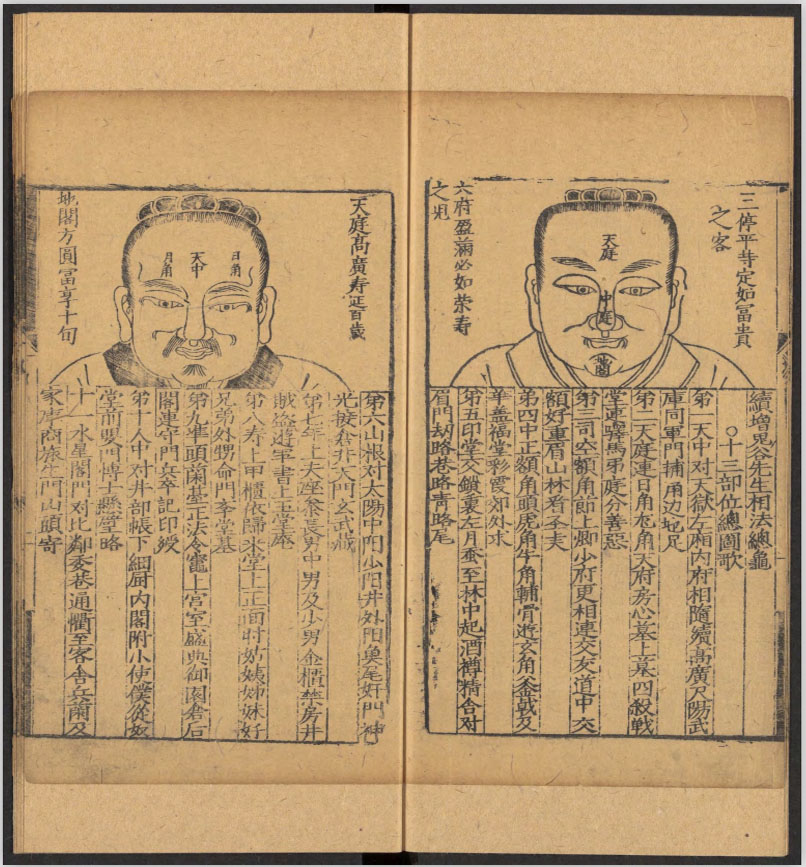 三停平等定如富貴
之客
六府盈滿必如荣寿
之児
天庭
中庭
地閣
續增鬼谷先生相法總龜
○十三部位總圖歌
第一天中对天獄左廂內府相隨續高廣尺陽武
庫同軍門輔角边地足
第二天庭連日角龙角天府房心墓上墓四殺戦
堂連驛馬弔庭分善惡
第三司空額角節上卿少府更相連交友道中交
額好重眉山林看圣夫
第四中正額角頭虎角牛角輔骨遊玄角釜戟及
华盖福堂彩霞郊外求
第五印堂交鎖裏左月蚕至林中起酒樽精舍对
眉門劫路巷路青路尾
天庭高廣寿延百歲
地閣方圓富享十旬
日角
天中
月角
第六山根对太陽中阳少阳并外阳奥尾奸門神
光接倉井天門玄武藏
第七年上夫座叅長男中男及少男金櫃禁房井
賊盗遊軍書上玉堂庵
第八寿上甲櫃依歸来堂上正面时姑姨姉妹好
兄弟外甥命門李堂墓
第九凖頭蘭臺正法令竈上宫室盛典御園倉后
閣連守門兵卒記印綬
第十人中对井部帳下細厨内閣附小使僕從奴
堂前嬰門博士懸堂略
十一水星閣門对比鄰委巷通衢至客舍兵蘭及
家庫商旅生門山頭寄